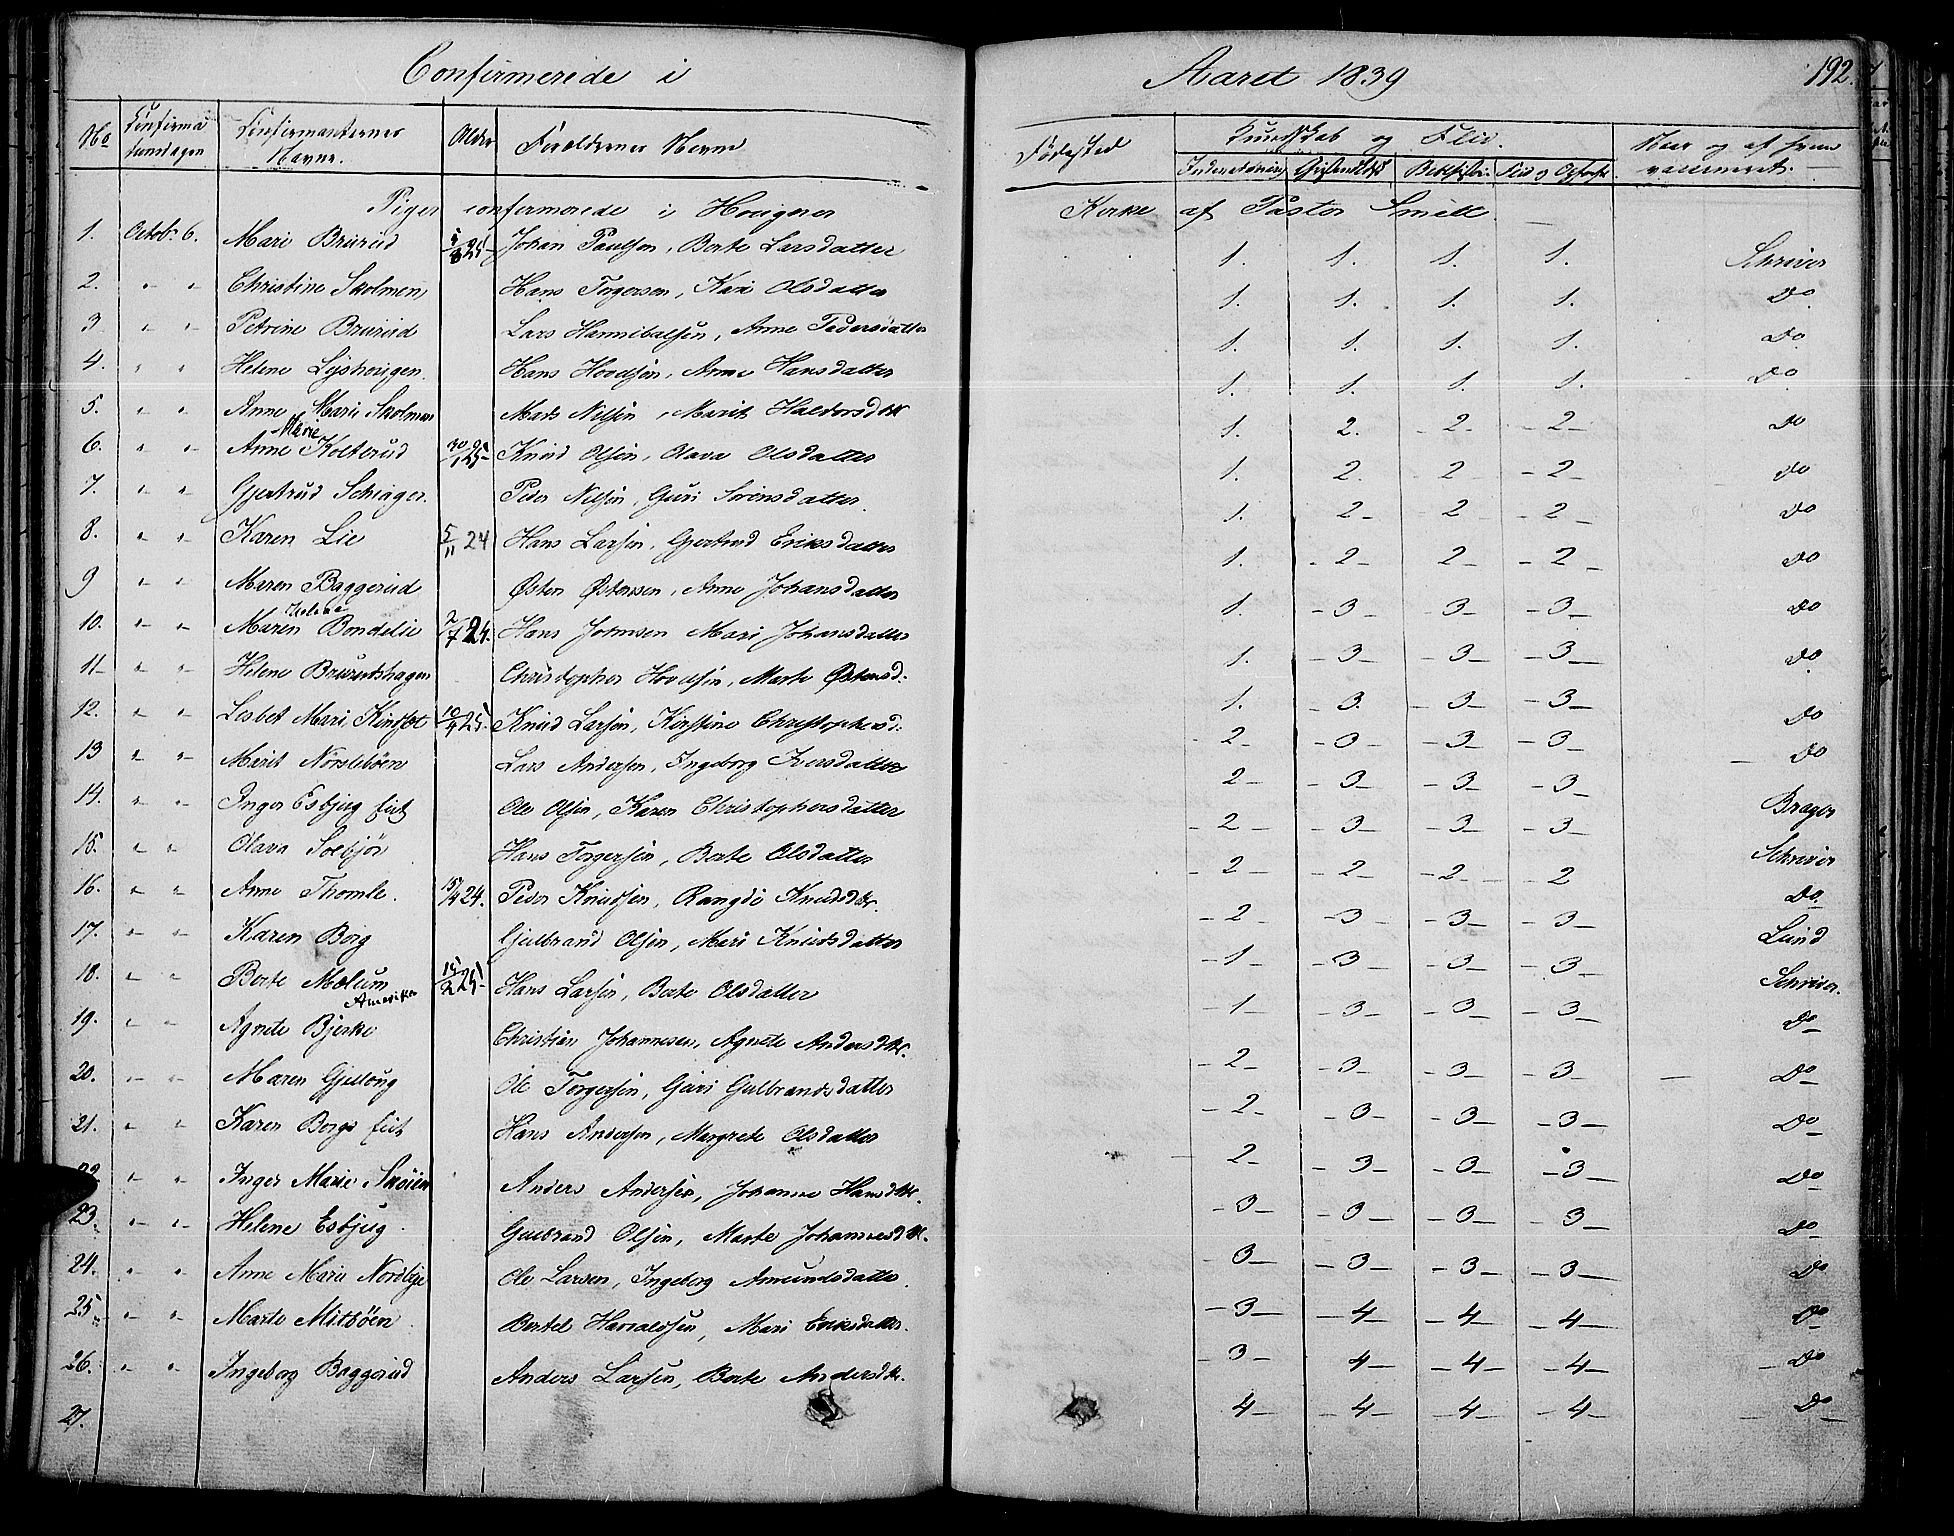 Confirmerede i Aaret 1839 192.
No Confirma tionsdagen Confirmanternes Navne. Alder Forældrenes Navne Fødested Kundskab og Flid. Naar og af hvem vaccineret.
Piger confirmerede i Hovigener Kirke af Pastor Smitt.
1. Octob. 6. Mari Brurud 5/8 25 Johan Paulsen, Berte Larsdatter 1. 1. 1. 1. Schriver
2. " " Christine Skolmen Hans Torgersen, Kari Olsdatter 1. 1. 1. 1. Do
3 " " Petrine Brurud Lars Hannibalsen, Anne Pedersdatter 1. 1. 1. 1. Do
4. " " Helene Lyshougen. Hans Hovelsen, Anne Hansdatter 1. 1. 1. 1. Do
5. " " Anne Marie Skolmen Mads Nilsen, Marit Haldorsdtr 1. 2. 2 2 Do
6. " " Anne Marie Kolterud 30/1 25 Knud Olsen, Olava Olsdatter 1. 2. 2 2 Do
7. " " Gjertrud Schiager. Peder Nilsen, Guri Sörensdatter. 1. 2 2 2 Do
8. " " Karen Lie 5/11 24 Hans Larsen, Gjertrud Eriksdatter 1. 2 2 2 Do
9 " " Maren Baggerud Østen Østensen, Anne Johansdatter 1. 3 3 3 Do
10. " " Maren Helene Bondelie 2/7 24. Hans Johnsen Mari Johansdatter 1. 3 3 3 Do
11 " " Helene Brurudshagen Christopher Hovelsen, Marte Østensd: 1. 3 3 3 Do
12. " " Lisbet Mari Kindset 10/4 25. Knud Larsen, Kirstine Christophersd: 2 3 3 3 Do
13 " " Marit Norsleböen Lars Andersen, Ingeborg Iversdatter 2 3 3 3 Brager
14. " " Inger Esbjug Eiet Ole Olsen, Karen Christophersdatter 2 3 3 3 Schriver
15. " " Olava Solbjör Hans Torgersen, Berte Olsdatter 2 2 2 2 Do
16. " " Anne Thomle. 15/4 24. Peder Knudsen, Rangdi Knudsdtr. 2 3 3 3 Lund
17. " " Karen Borg Gulbrand Olsen, Mari Knudsdatter 1 3 3 3 Schriver.
18. " " Berte Mælum Amerika 15/2 25 Hans Larsen, Berte Olsdatter 1 3 3 3 Do
19. " " Agnete Bjerke Christian Johannesen, Agnete Andersdtr. 2 3 3 3 Do
20. " " Maren Gjelloug Ole Torgersen, Guri Gulbrandsdatter 2 3 3 3 Do
21. " " Karen Borge Eiet Hans Andersen, Margrete Olsdatter 2 3 3 3 Do
22 " " Inger Marie Sköien Anders Andersen, Johanne Hansdtr. 3 3 3 3 Do
23. " " Helene Esbjug. Gulbrand Olsen, Marte Johannesdtr. 3 3 3 3 Do
24. " " Anne Maria Nordlije Ole Larsen, Ingeborg Amundsdatter. 3 4 4 4 Do
25 " " Marte Mitböen. Bertel Haraldsen, Mari Eriksdatter. 3 4 4 4 Do
26. " " Ingeborg Baggerud Anders Larsen, Berte Andersdtr. 4 4 4 4 Do
27.